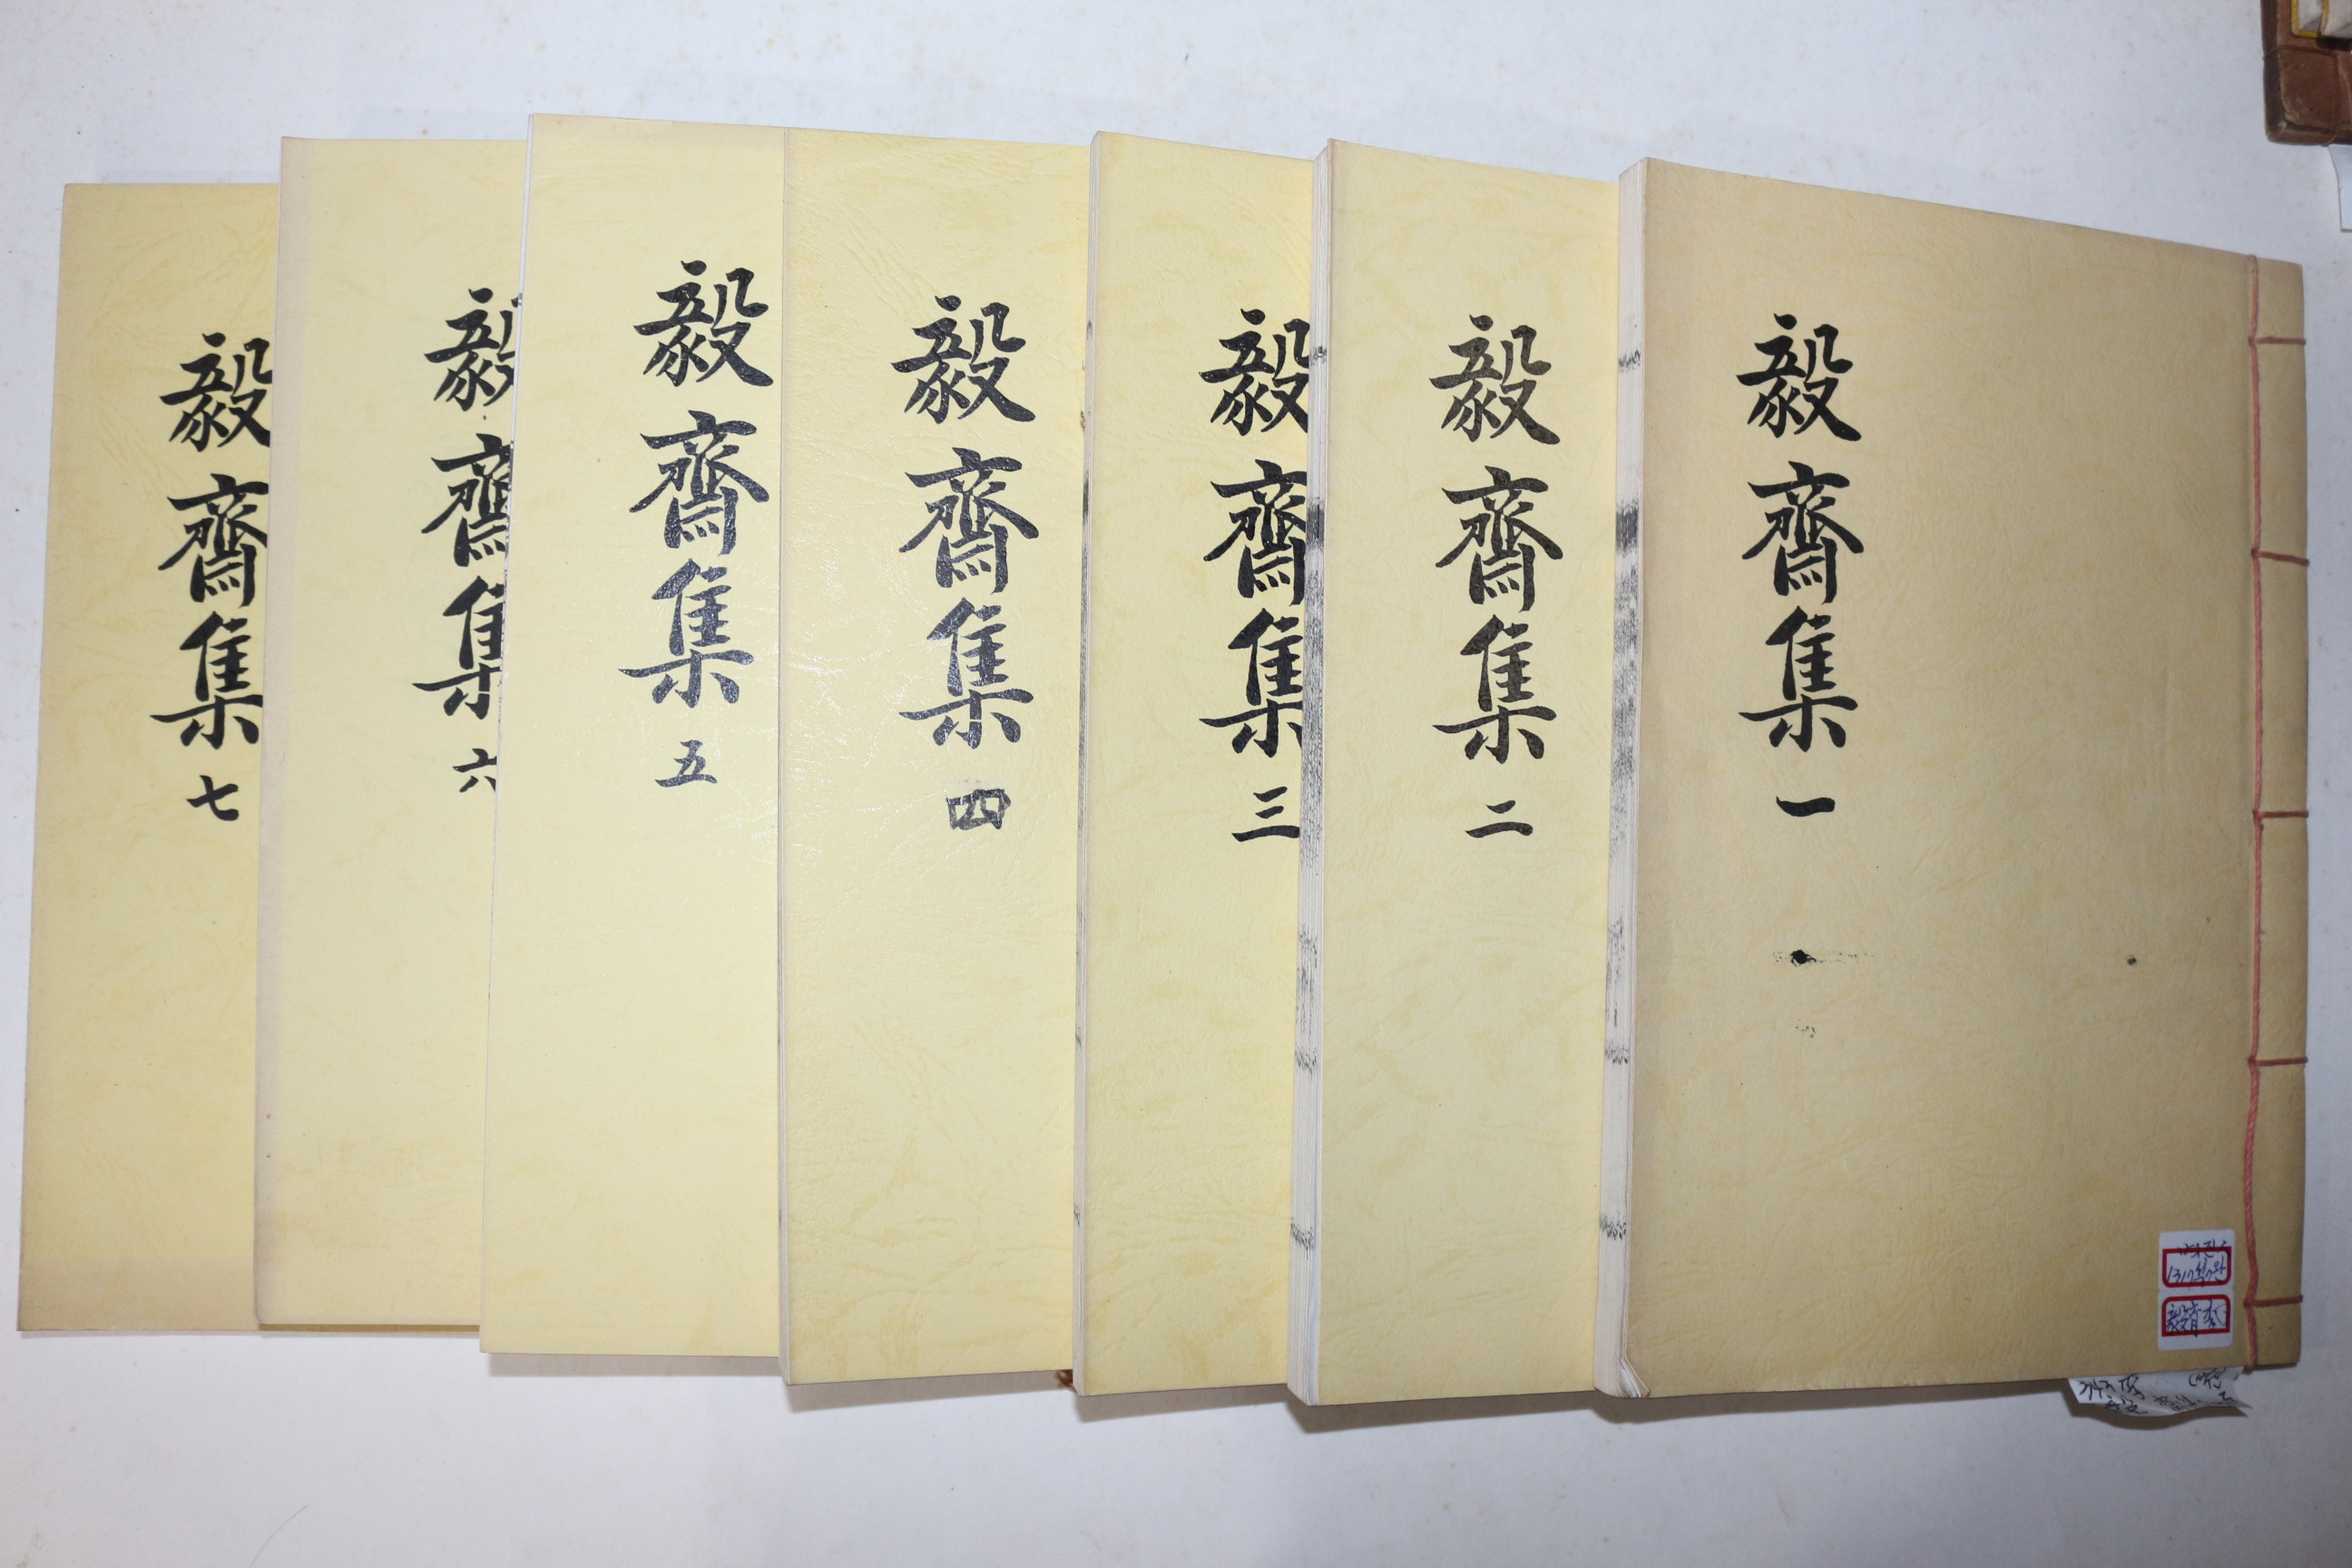 毅齋集 一
毅齋集 二
毅齋集 三
毅齋集 四
毅齋集 五
毅齋集 六
毅齋集 七
毅齋集